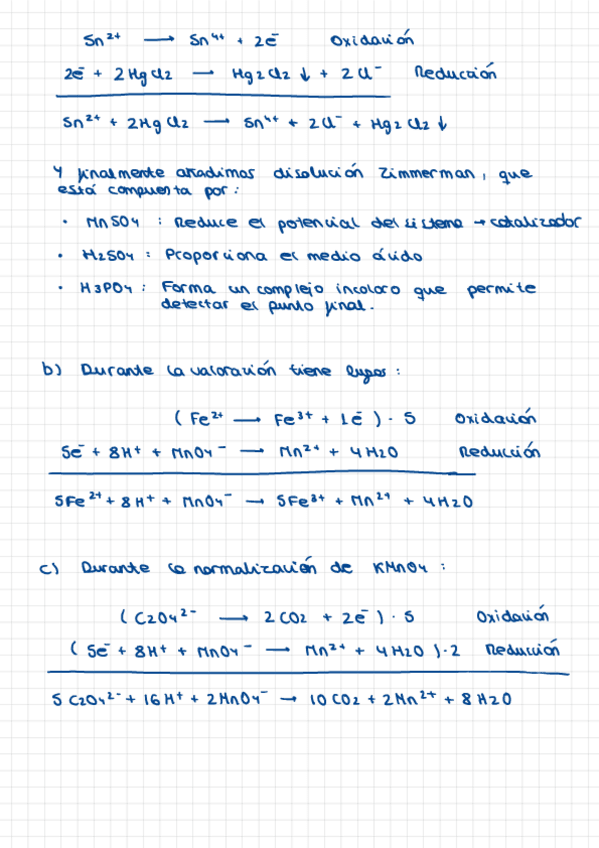 Sn²⁺ → Sn⁴⁺ + 2e⁻ Oxidación
2e⁻ + 2HgCl2 → Hg2Cl2 ↓ + 2Cl⁻ Reducción
Sn²⁺ + 2HgCl2 → Sn⁴⁺ + 2Cl⁻ + Hg2Cl2 ↓
Y finalmente añadimos disolución Zimmerman, que
está compuesta por:
· MnSO4 : Reduce el potencial del sistema → catalizador
· H2SO4 : Proporciona el medio ácido
· H3PO4 : Forma un complejo incoloro que permite
detectar el punto final.
b) Durante la valoración tiene lugar :
(Fe²⁺ → Fe³⁺ + 1e⁻) · 5 Oxidación
5e⁻ + 8H⁺ + MnO4⁻ → Mn²⁺ + 4H2O Reducción
5Fe²⁺ + 8H⁺ + MnO4⁻ → 5Fe³⁺ + Mn²⁺ + 4H2O
c) Durante la normalización de KMnO4 :
(C2O4²⁻ → 2CO2 + 2e⁻) · 5 Oxidación
(5e⁻ + 8H⁺ + MnO4⁻ → Mn²⁺ + 4H2O) · 2 Reducción
5C2O4²⁻ + 16H⁺ + 2MnO4⁻ → 10CO2 + 2Mn²⁺ + 8H2O